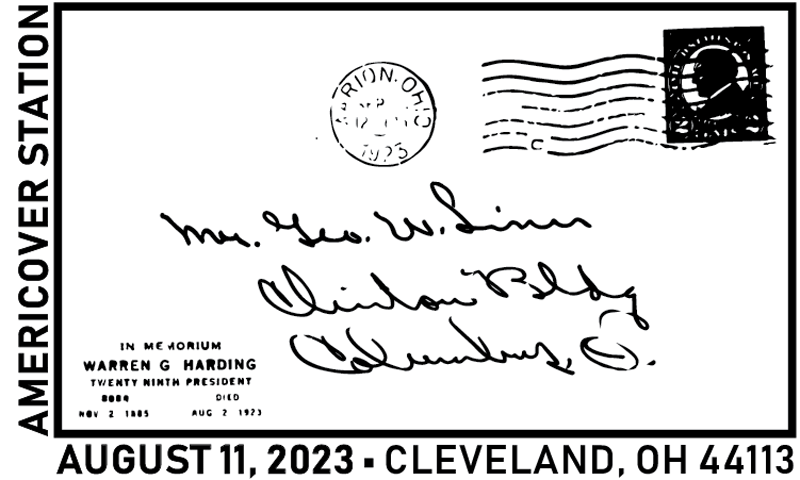 AMERICOVER STATION
MARION, OHIO
1923
C
Mr. Geo. W. Linn
Clinton Bldg
Columbus, O.
IN MEMORIUM
WARREN G HARDING
TWENTY NINTH PRESIDENT
BORN DIED
NOV 2 1885 AUG 2 1923
AUGUST 11, 2023 ▪ CLEVELAND, OH 44113